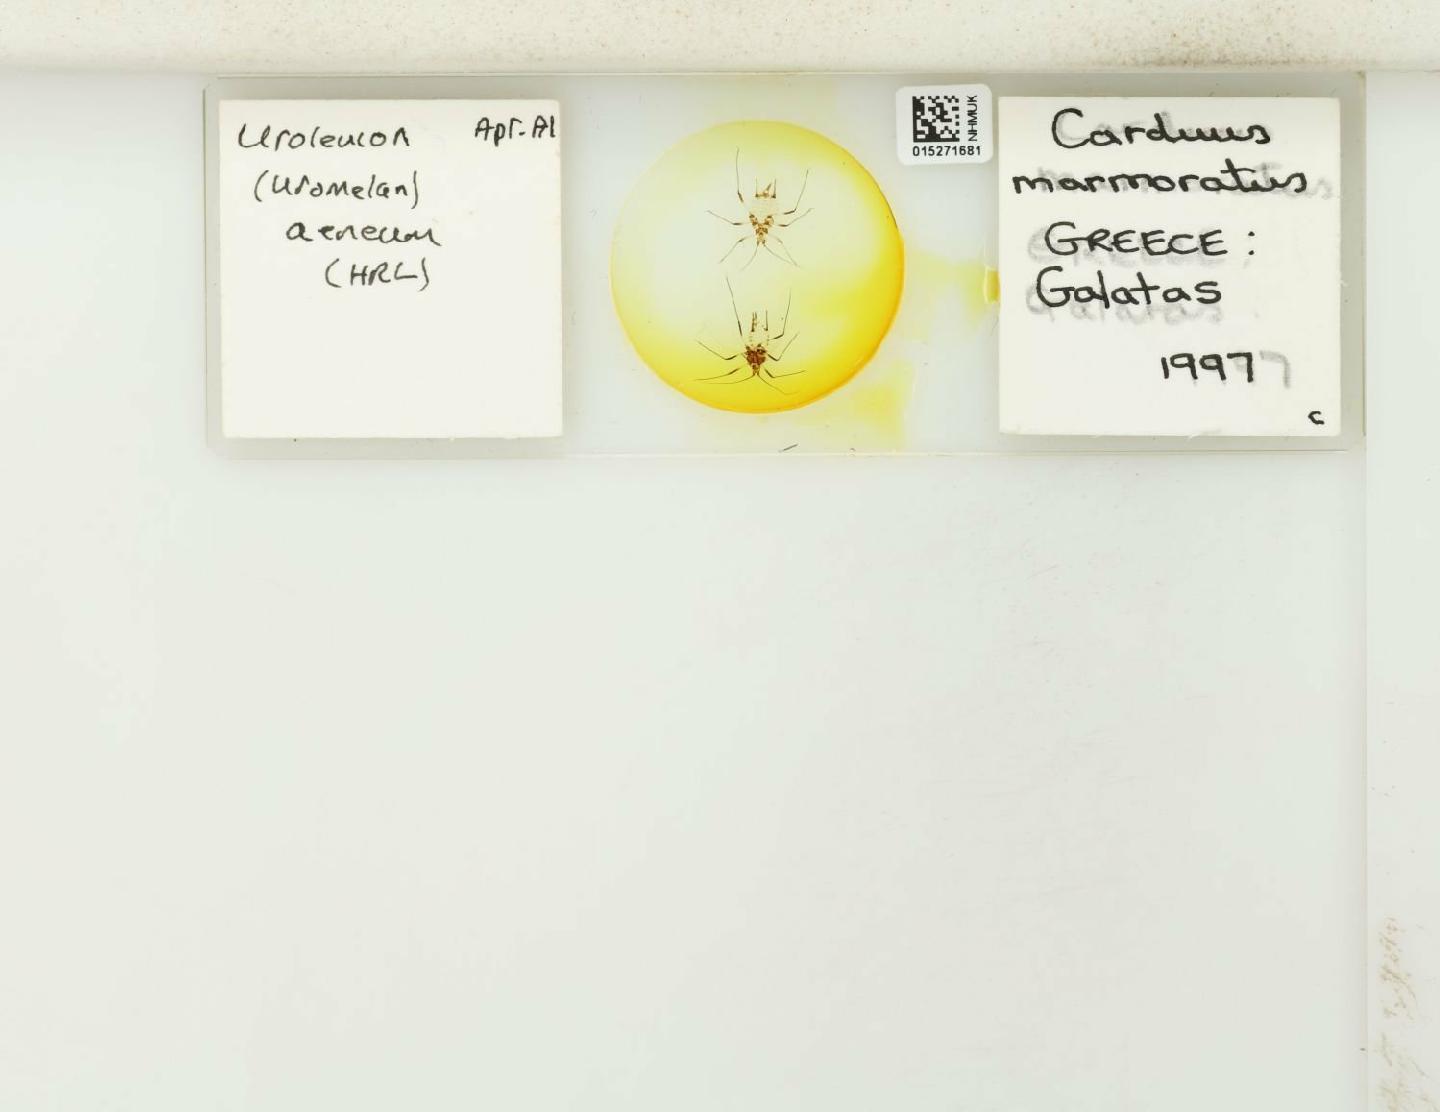 Uroleucon Apt. Al
(Uromelan)
aeneum
(HRL)
NHMUK
015271681
Carduus
marmoratus
GREECE:
Galatas
1997
c